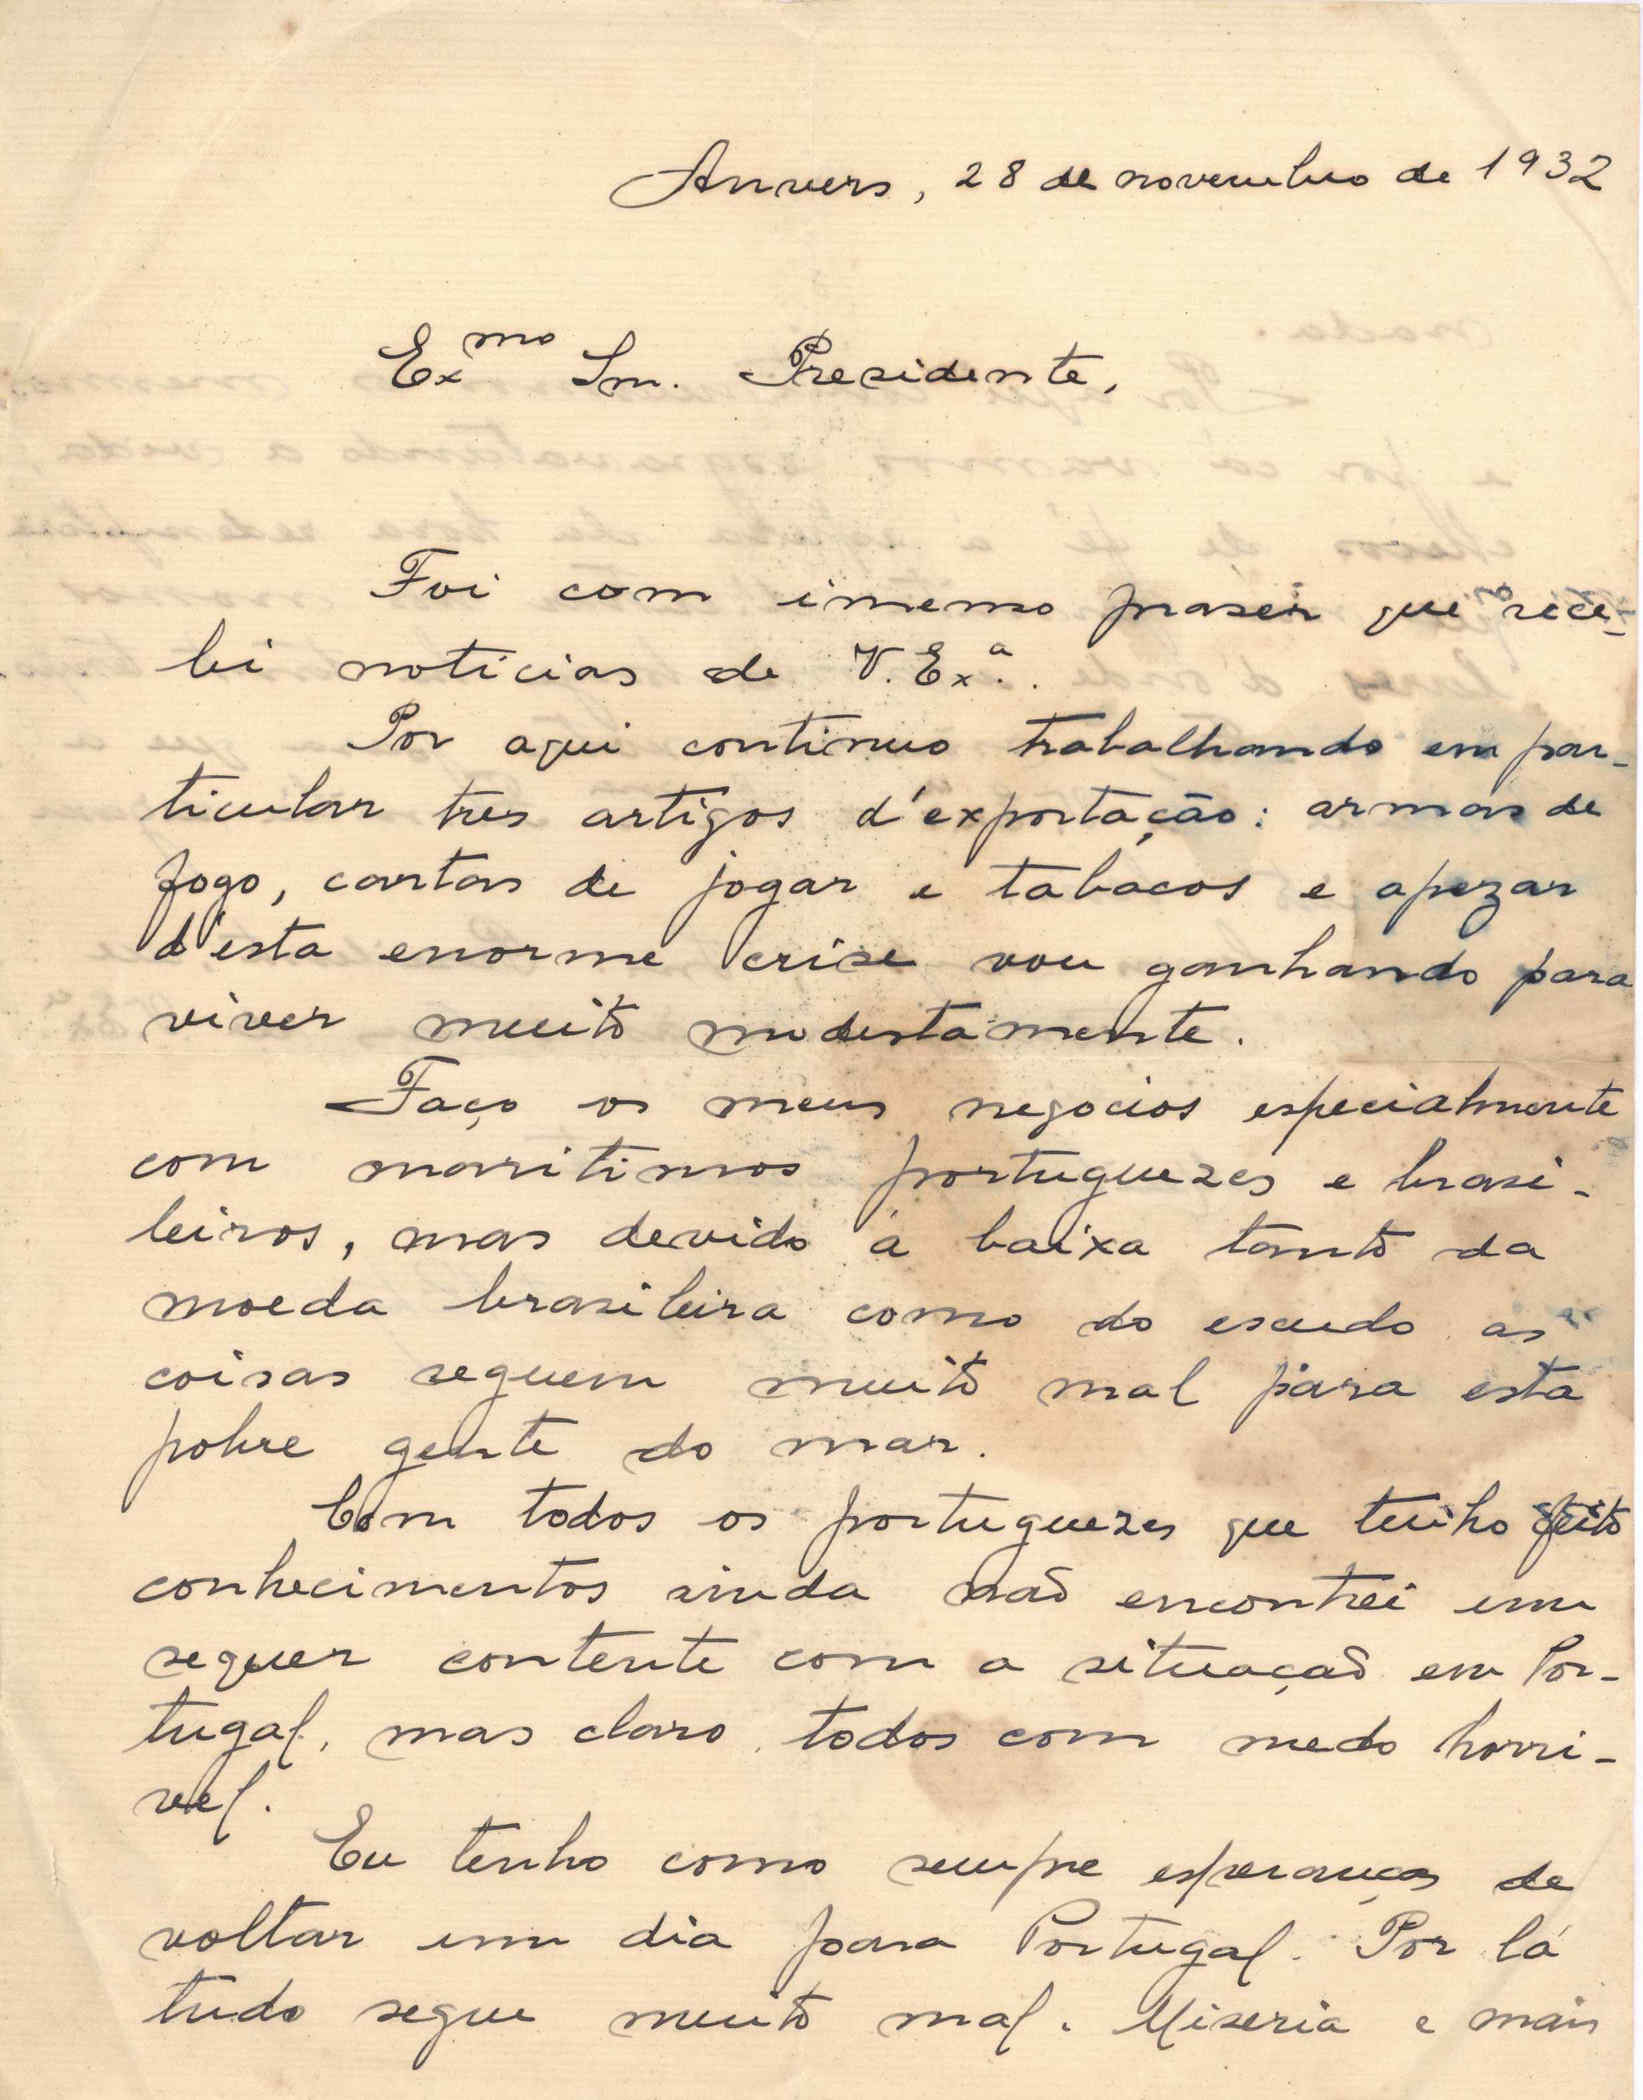 Anvers, 28 de novembro de 1932
Ex.mo Snr. Presidente,
Foi com imenso praser que rece-
bi noticias de V. Ex.a.
Por aqui continuo trabalhando em par-
ticular tres artigos d'exportação: armas de
fogo, cartas de jogar e tabacos e apezar
d'esta enorme crise vou ganhando para
viver muito modestamente.
Faço os meus negocios especialmente
com maritimos portuguezes e brasi-
leiros, mas devido á baixa tanto da
moeda brasileira como do escudo as
coisas seguem muito mal para esta
pobre gente do mar.
Com todos os portuguezes que tenho feito
conhecimentos ainda não encontrei um
sequer contente com a situação em Por-
tugal, mas claro, todos com medo horri-
vel.
Eu tenho como sempre esperanças de
voltar um dia para Portugal. Por lá
tudo segue muito mal. Miseria e mais